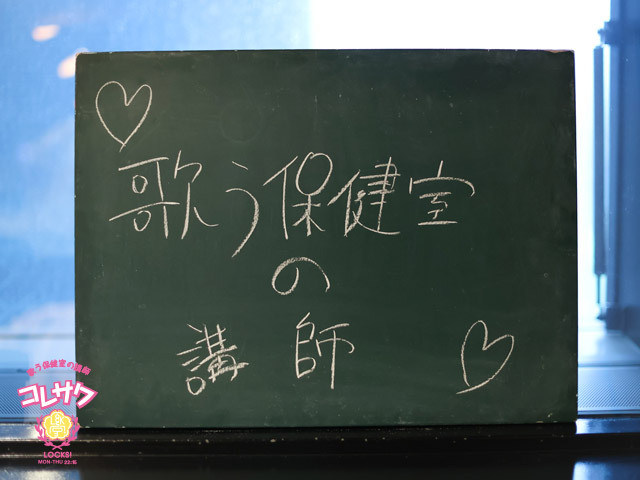 歌う保健室
の
講師
歌う保健室の講師
コレサワ
LOCKS!
MON-THU 22:15